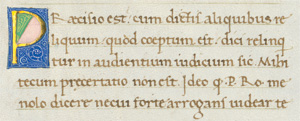 PRæcisio est, cum dictis aliquibus re
liquum quod coeptum est dici relinq
tur in audientium iudicium sic. Mihi
tecum præcertatio non est. Ideo q. P. Ro. me
nolo dicere necui forte arrogans videar te